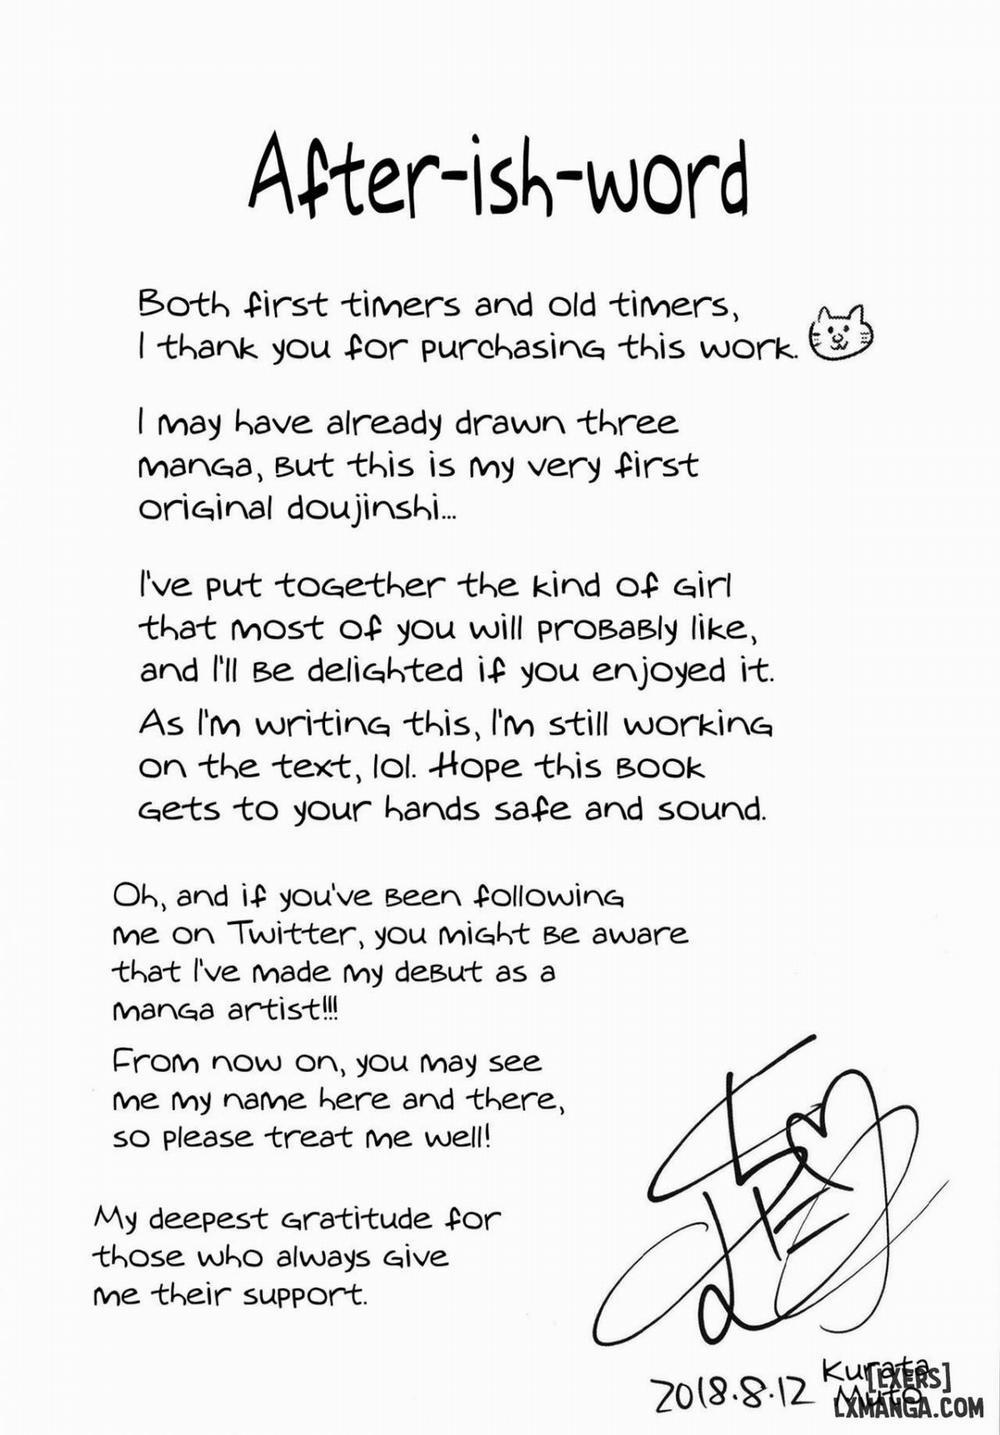 After-ish-word
Both first timers and old timers,
I thank you for purchasing this work.
I may have already drawn three
manga, but this is my very first
original doujinshi...
I've put together the kind of girl
that most of you will probably like,
and I'll be delighted if you enjoyed it.
As I'm writing this, I'm still working
on the text, lol. Hope this book
gets to your hands safe and sound.
Oh, and if you've been following
me on Twitter, you might be aware
that I've made my debut as a
manga artist!!!
From now on, you may see
me my name here and there,
so please treat me well!
My deepest gratitude for
those who always give
me their support.
2018.8.12
Kurata
Muto
[LXERS]
LXMANGA.COM